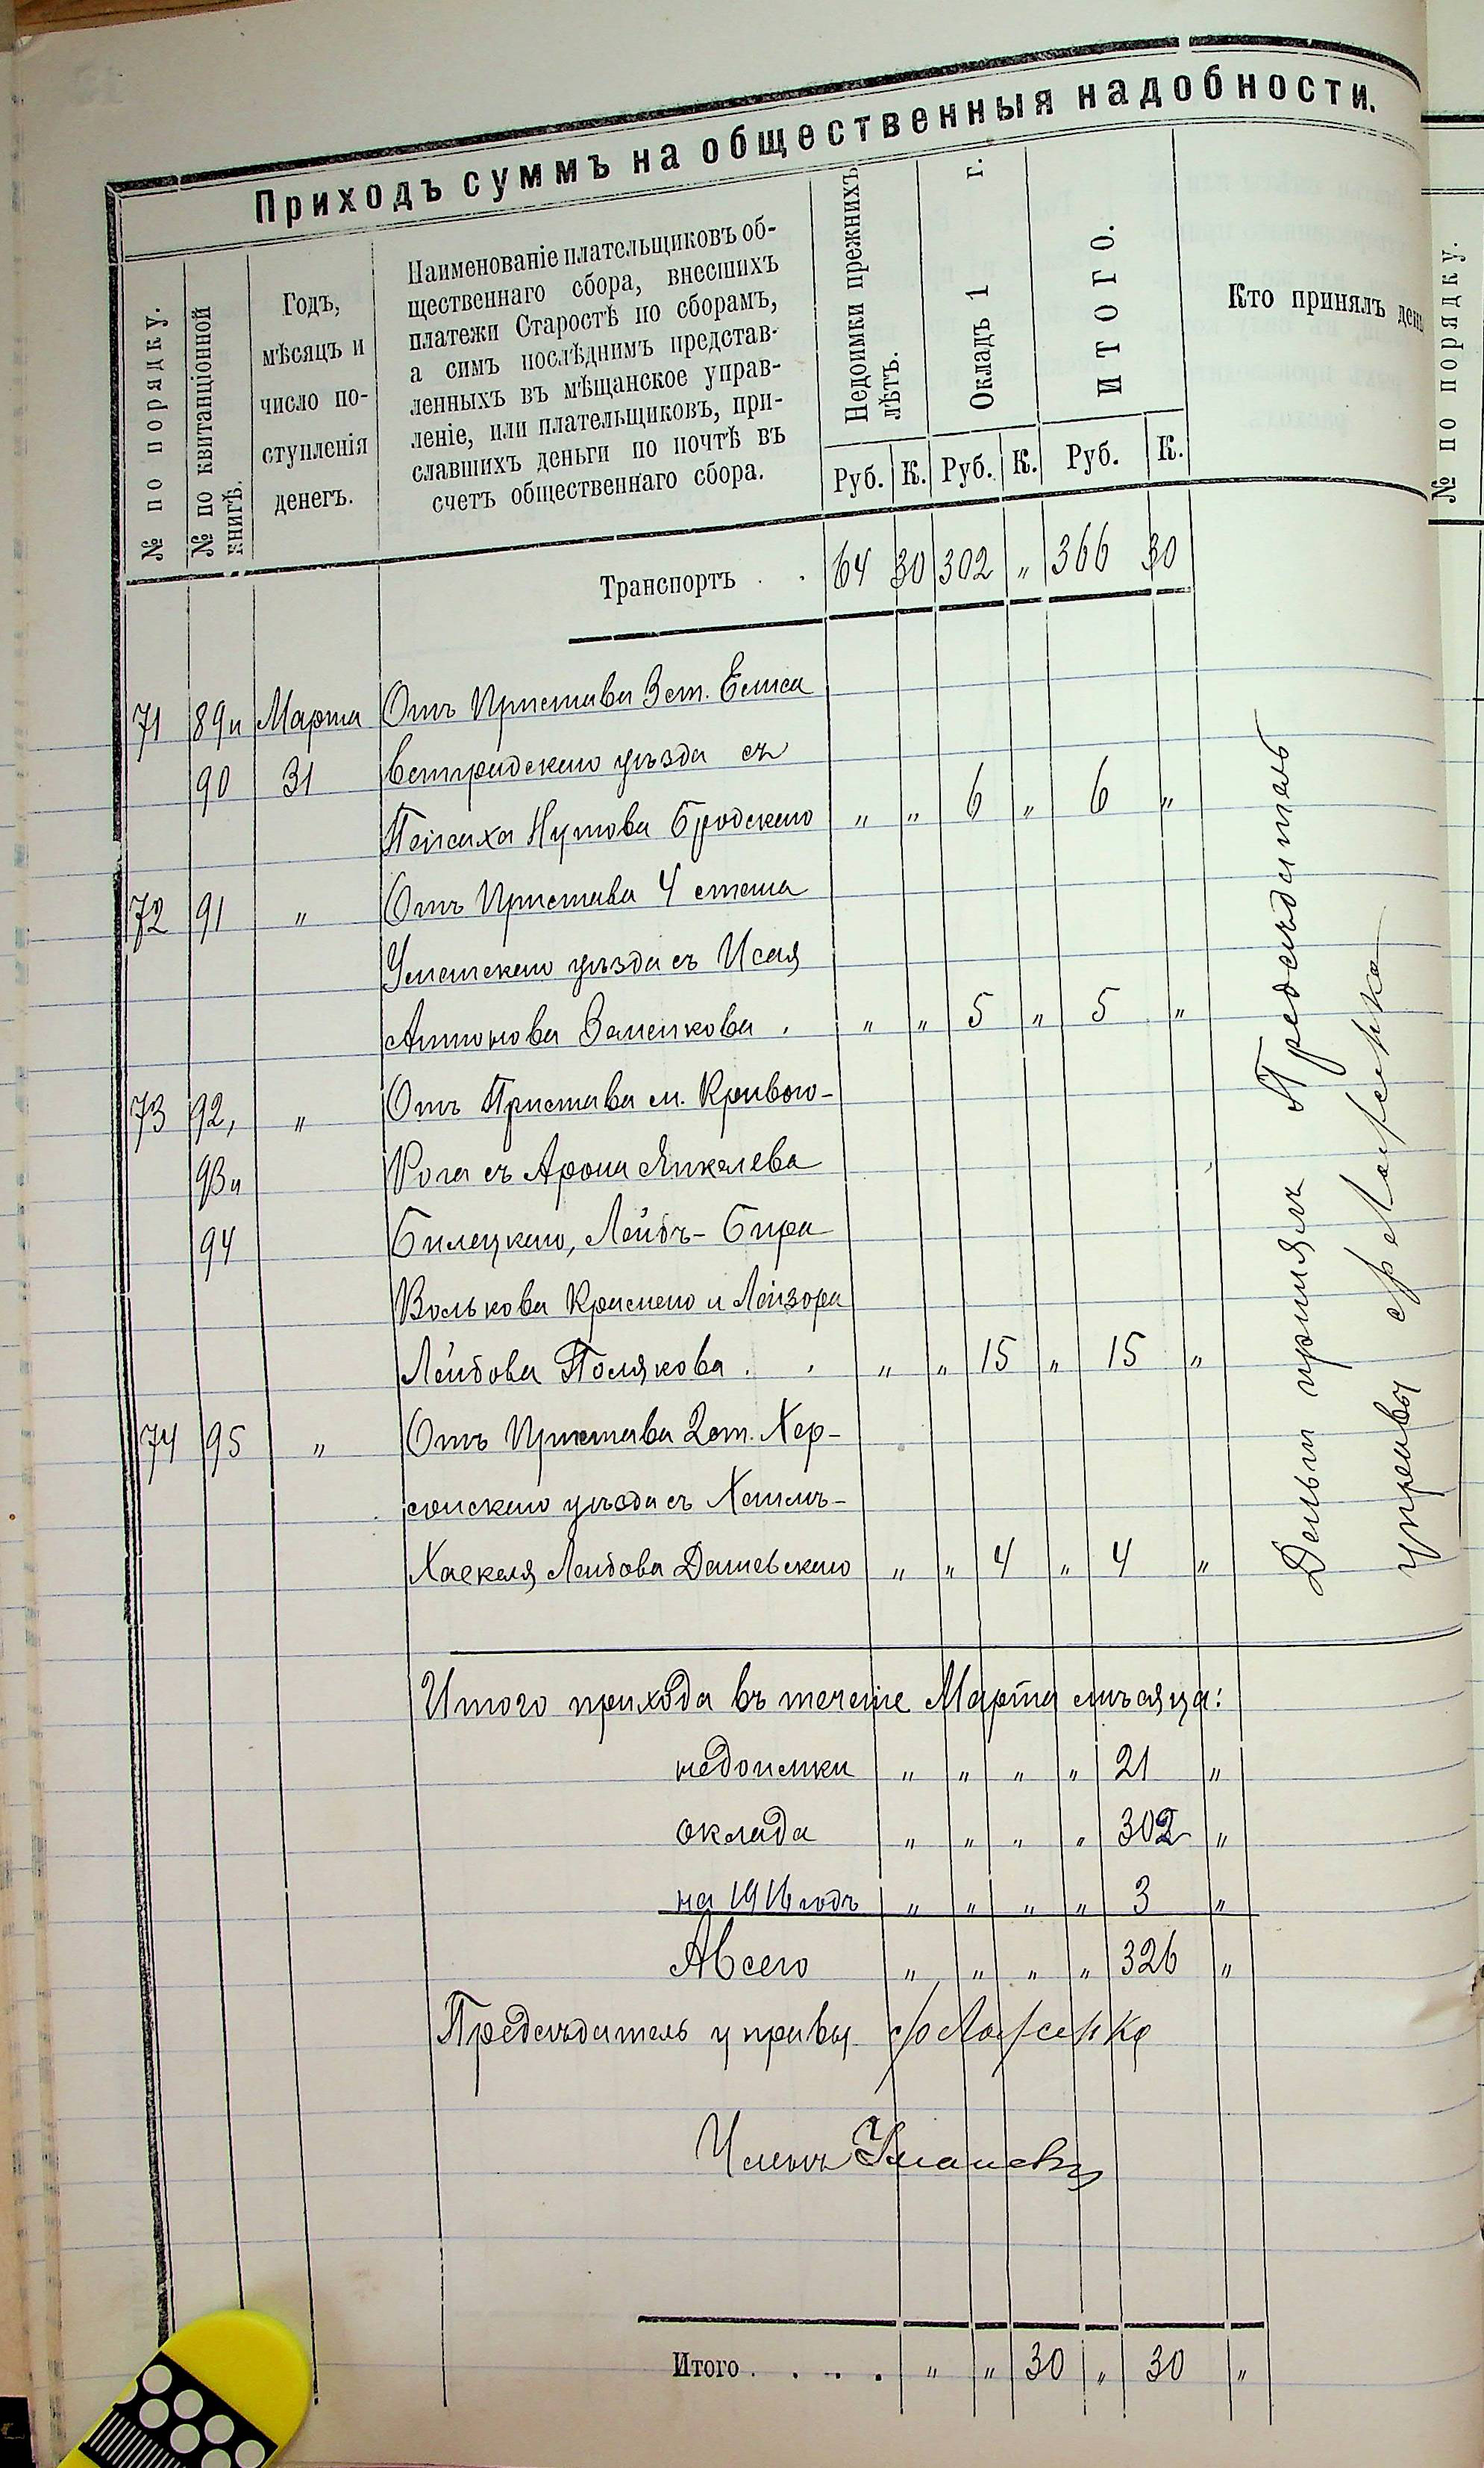 Приходъ суммъ на общественныя надобности.
№ по порядку.
№ по квитанціонной
книгѣ.
Годъ,
мѣсяцъ и
число по-
ступленія
денегъ.
Наименованіе плательщиковъ об-
щественнаго сбора, внесшихъ
платежи Старостѣ по сборамъ,
а симъ послѣднимъ представ-
ленныхъ въ мѣщанское управ-
леніе, или плательщиковъ, при-
славшихъ деньги по почтѣ въ
счетъ общественнаго сбора.
Недоимки прежнихъ
лѣтъ.
Окладъ 1 г.
ИТОГО.
Кто принялъ
Руб. К. Руб. К. Руб. К.
Транспортъ . . 64 30 302 " 366 30
71 89и Марта Отъ Пристава 3 ст. Елиса
90 31 ветградскаго уѣзда съ
Пейсаха Нутова Бродскаго " " 6 " 6 "
72 91 " Отъ Пристава 4 стана
Уманскаго уѣзда съ Исая
Антонова " " 5 " 5 "
73 92, " Отъ Пристава м. Кривого-
93и Рога съ Арона Янкелева
94 Билецкаго, Лейбъ-
Волькова и Лейзора
Лейбова Полякова . . " " 15 " 15 "
74 95 " Отъ Пристава 2 ст. Хер-
сонскаго уѣзда съ
Хаскеля Лейбова Дашевскаго " " 4 " 4 "
Деньги принялъ Предсѣдатель
управы
Итого прихода въ теченіе Марта мѣсяца:
недоимки " " " " 21 "
оклада " " " " 302 "
на 1916 годъ " " " " 3 "
А всего " " " " 326 "
Предсѣдатель управы
Членъ
Итого . . . . " " 30 " 30 "
№ по порядку.